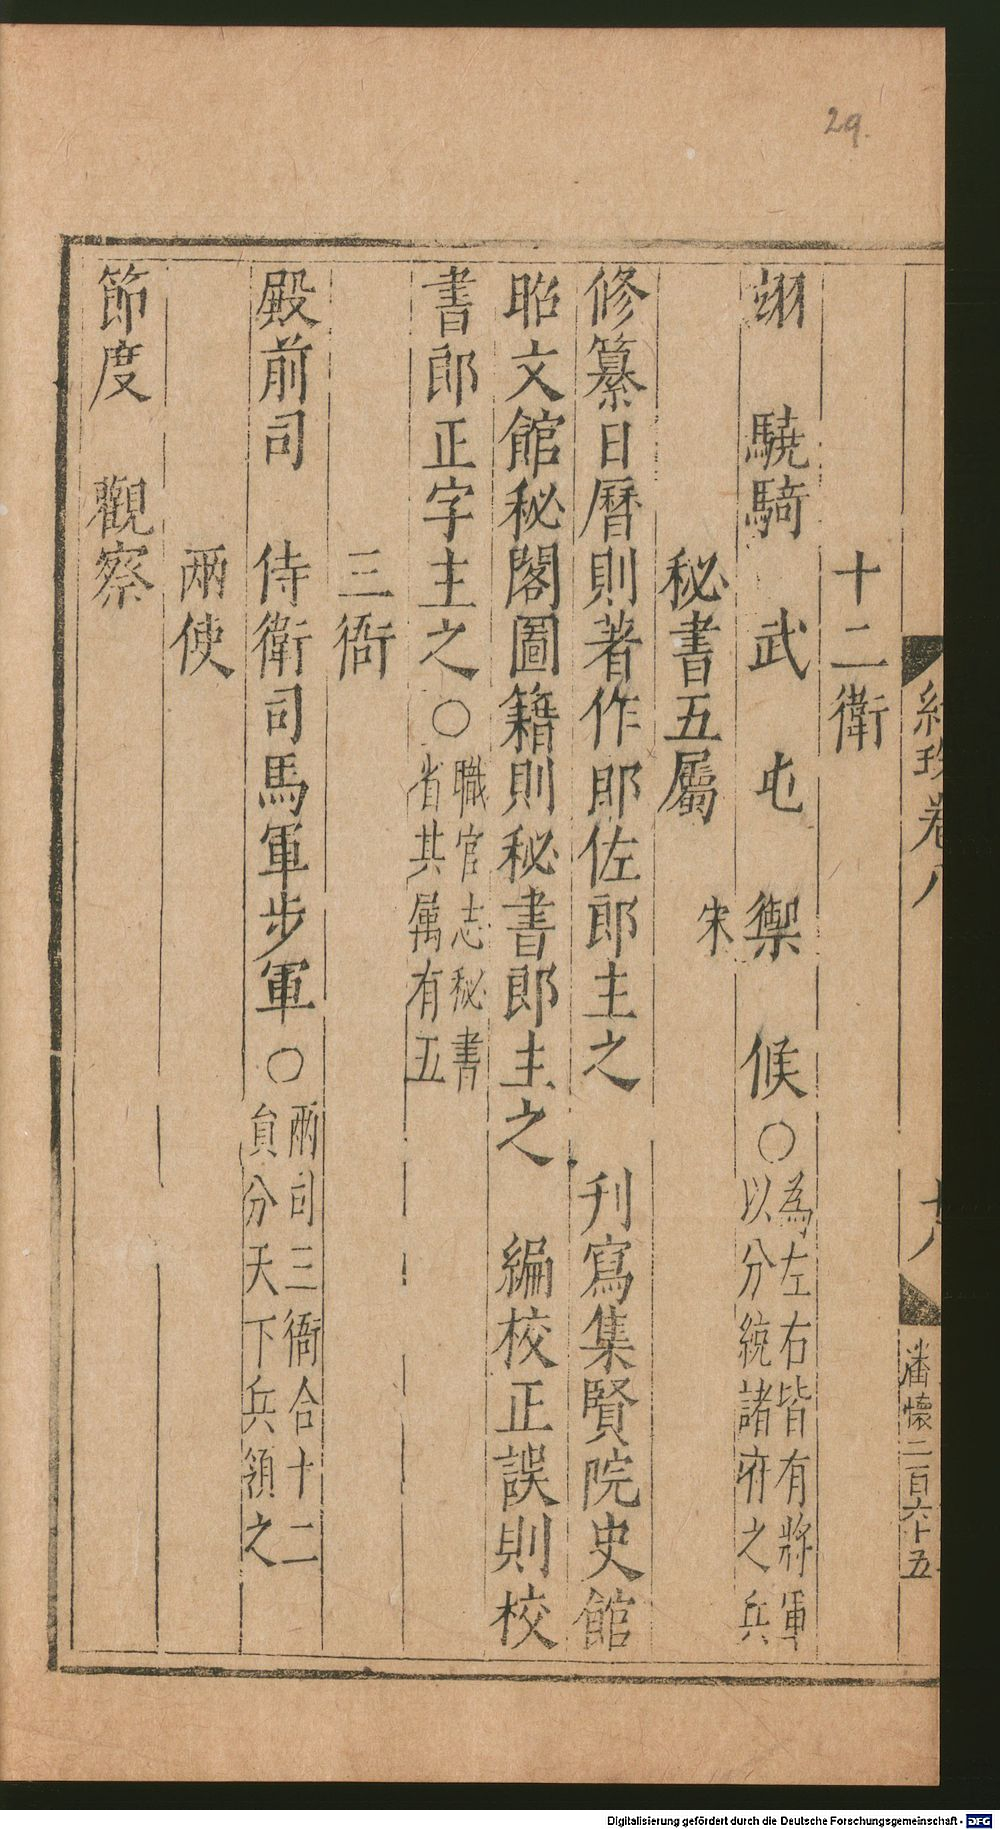 29.
卷八
潘懷二百六十五
十二衛
翊　驍騎　武　屯　禦　候○為左右皆有將軍以分統諸府之兵
秘書五屬　宋
修纂日曆則著作郎佐郎主之　刋寫集賢院史館
昭文館秘閣圖籍則秘書郎主之　編校正誤則校
書郎正字主之○職官志秘書省其属有五
三衙
殿前司　侍衛司馬軍步軍○兩司三衙合十二員分天下兵領之
兩使
節度　觀察
Digitalisierung gefördert durch die Deutsche Forschungsgemeinschaft - DFG